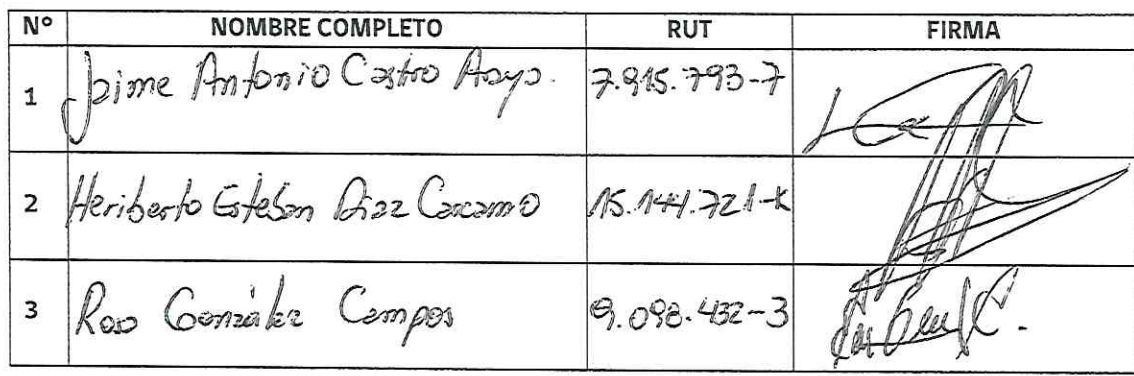 N° NOMBRE COMPLETO RUT FIRMA
1 Jaime Antonio Castro Araya. 7.915.793-7
2 Heriberto Esteban Diaz Carcamo 15.144.721-K
3 Rosa González Campos 9.098.432-3